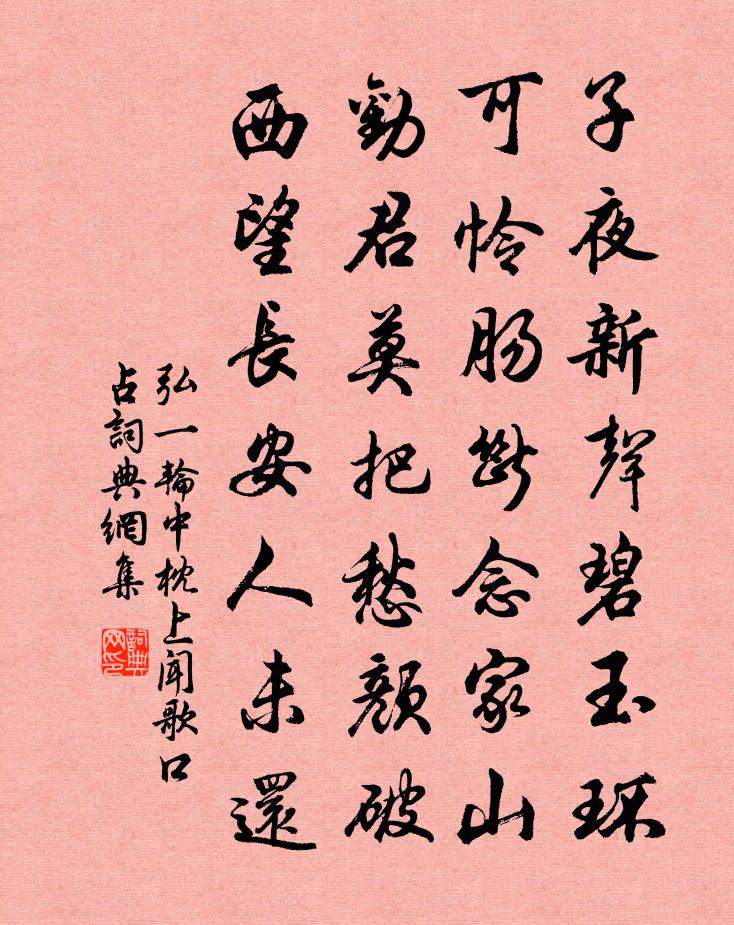 子夜新聲碧玉环
可怜腸斷念家山
勸君莫把愁顏破
西望長安人未還
弘一輪中枕上聞歌口
占詞典網集
詞典
网印